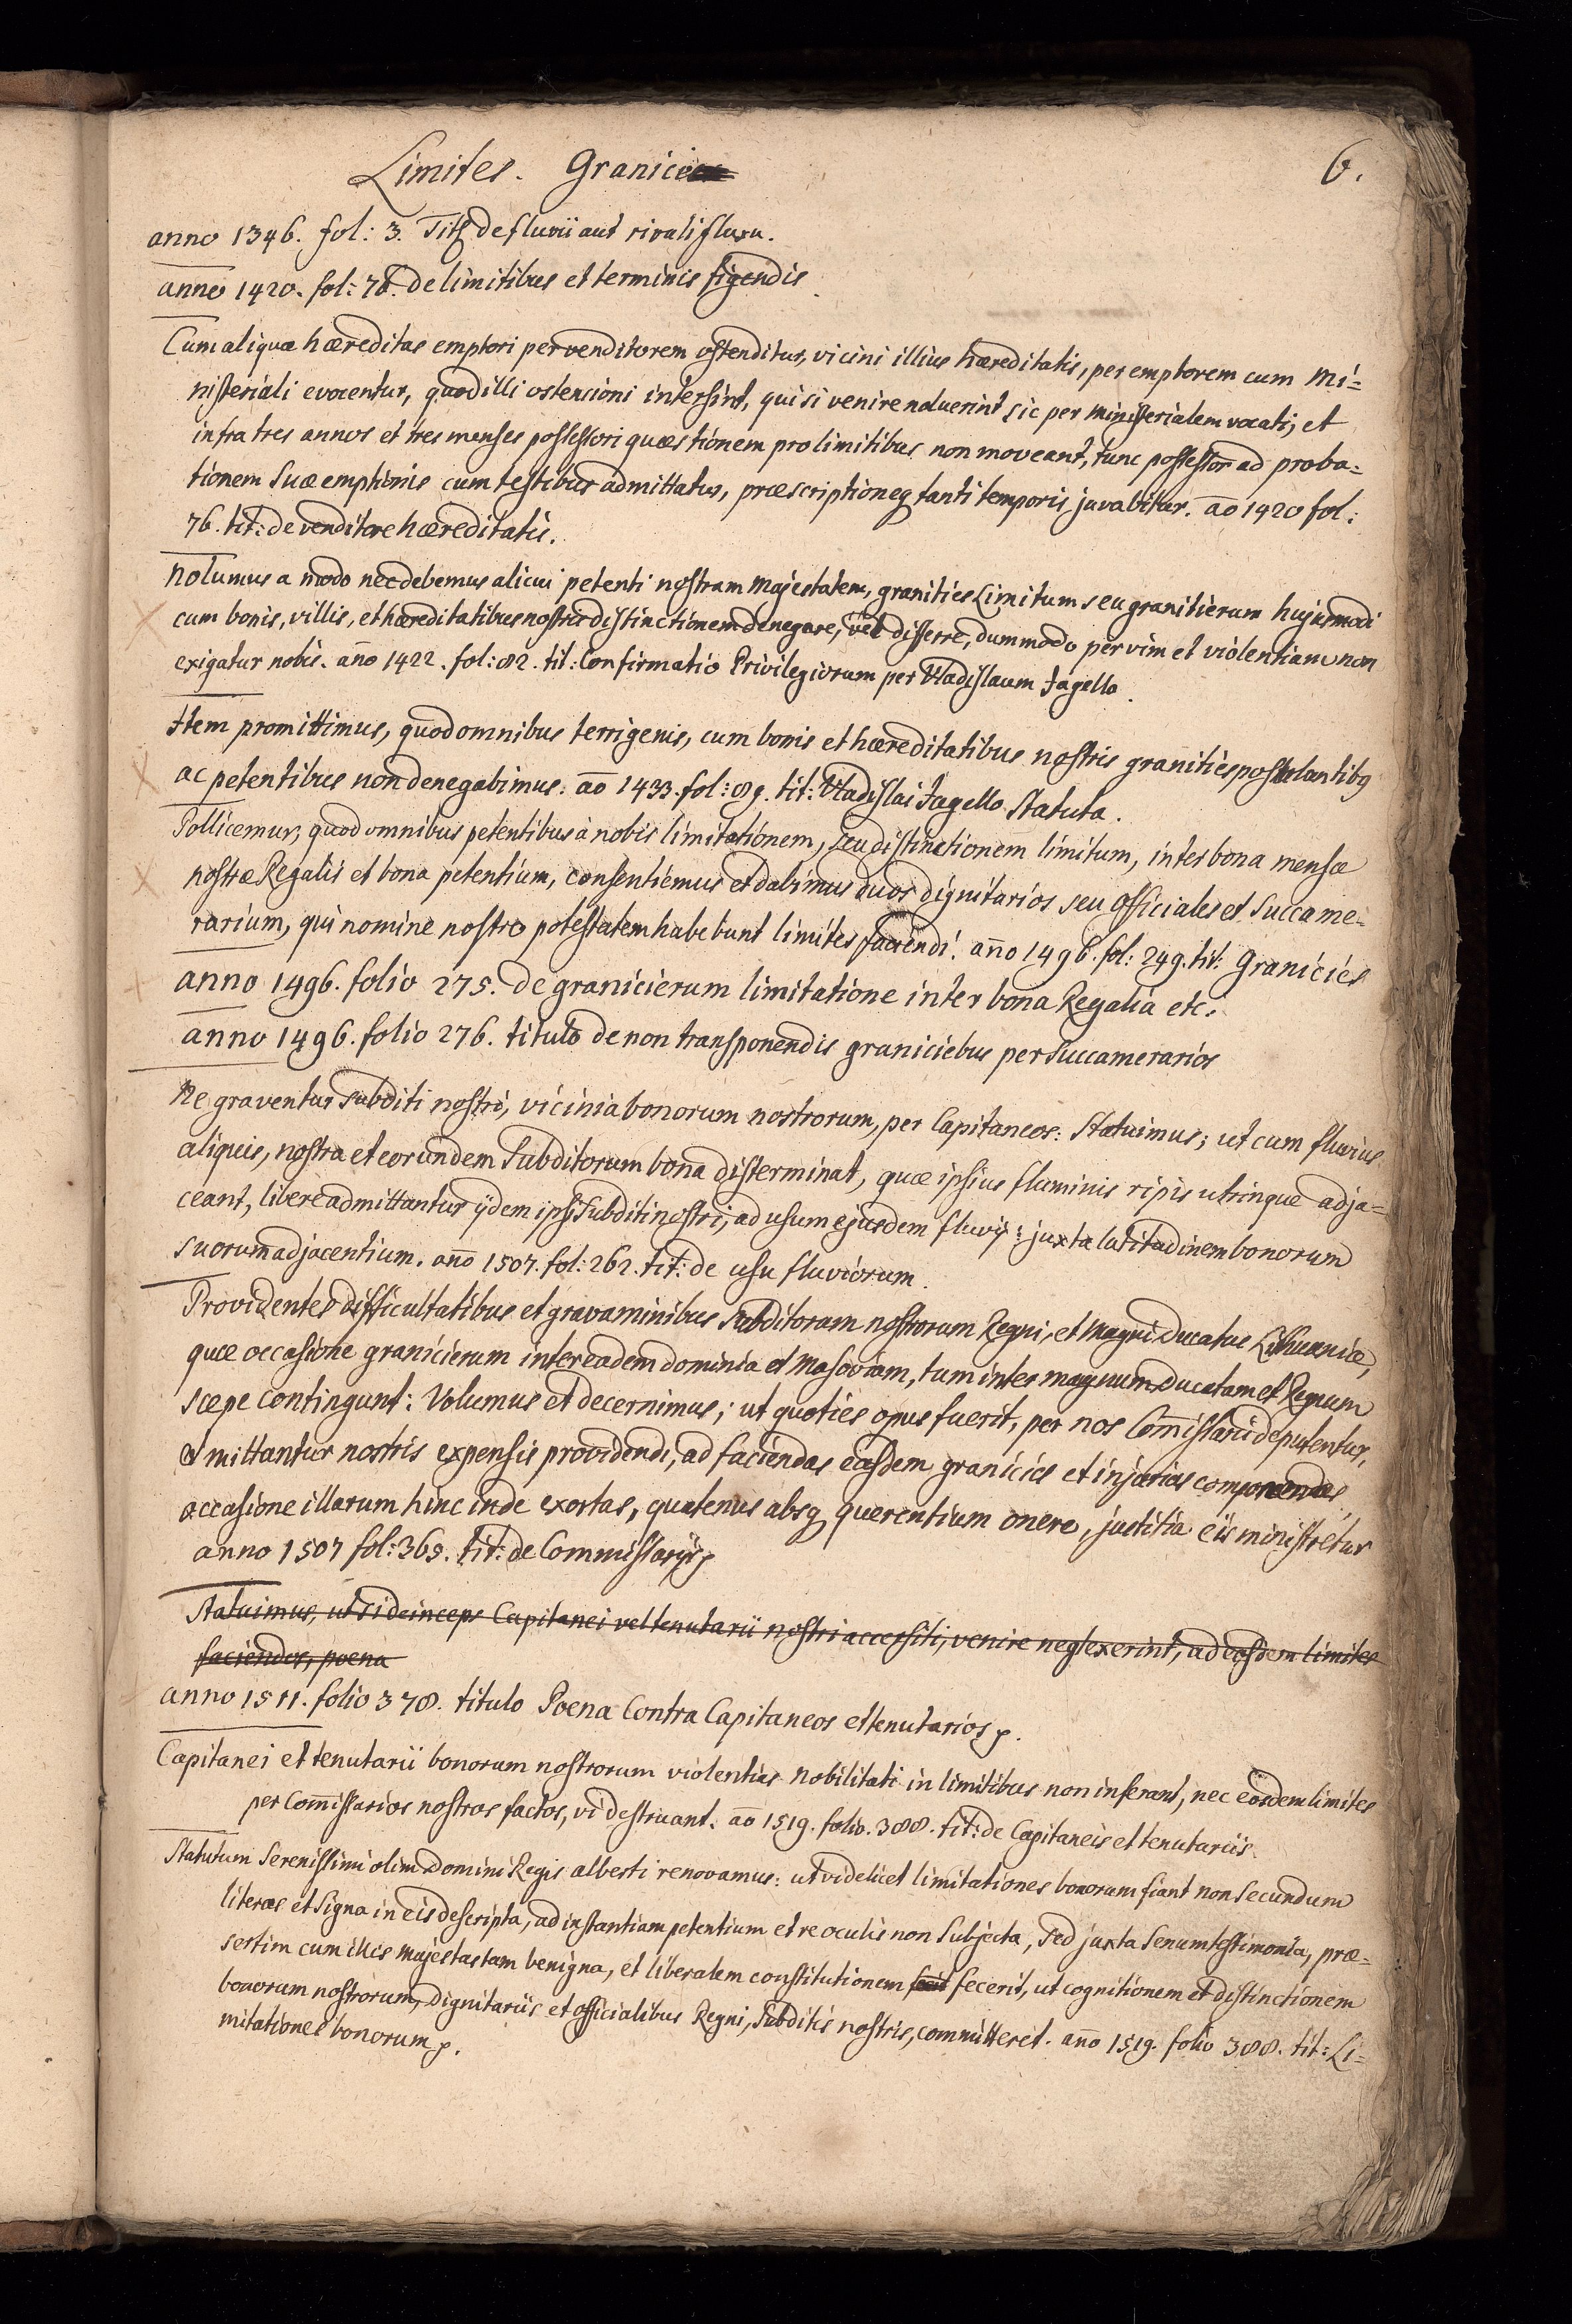 Limites. Granicies
6.
anno 1346. fol: 3. Titq de fluvii aut rivali fluxu.
anno 1420. fol: 78. de limitibus et terminis figendis.
Cum aliqua hæreditas emptori per venditorem ostenditur, vicini illius hæreditatis, per emptorem cum mi=
nisteriali evocentur, quod illi ostensioni intersint, qui si venire noluerint sic per ministerialem vocati; et
infra tres annos et tres menses possessori quæstionem pro limitibus non moveant, tunc possessor ad proba=
tionem suæ emptionis cum testibus admittatur, præscriptioneq tanti temporis juvabitur. ao 1420 fol:
76. tit: de venditore hæreditatis.
Nolumus a modo nec debemus alicui petenti nostram Majestatem, granities Limitum seu granitierum hujusmodi
cum bonis, villis, et hæreditatibus nostris distinctionem denegare, vel differre, dummodo per vim et violentiam non
exigatur nobis. año 1422. fol: 82. tit: Confirmatio Privilegiorum per Vladislaum Jagello.
Item promittimus, quod omnibus terrigenis, cum bonis et hæreditatibus nostris granities postulantibq
ac petentibus non denegabimus. ao 1433. fol: 89. tit: Vladislai Jagello Statuta.
Pollicemur, quod omnibus petentibus à nobis limitationem, seu distinctionem limitum, inter bona mensæ
nostræ Regalis et bona petentium, consentiemus et dabimus duos dignitarios seu Officiales et Succame=
rarium, qui nomine nostro potestatem habebunt limites faciendi. año 1496. fol: 249. tit: Granicies
anno 1496. folio 275. de granicierum limitatione inter bona Regalia etc.
anno 1496. folio 276. titulo de non transponendis graniciebus per Succamerarios
Ne graventur subditi nostri, vicinia bonorum nostrorum, per Capitaneos: Statuimus; ut cum fluvius
aliquis, nostra et eorundem Subditorum bona disterminat, quæ ipsius fluminis ripis utrinque adja=
ceant, libere admittantur ijdem ipsi Subditi nostri, ad usum ejusdem fluvij: juxta latitudinem bonorum
suorum adjacentium. año 1507. fol: 262. tit: de usu fluviorum.
Providentes difficultatibus et gravaminibus Subditorum nostrorum Regni, et Magni Ducatus Lithuaniæ,
quæ occasione granicierum inter eadem dominia et Masoviam, tum inter magnum Ducatum et Regnum
sæpe contingunt: Volumus et decernimus; ut quoties opus fuerit, per nos Com̄issarii deputentur,
et mittantur nostris expensis providendi, ad faciendas easdem granicies et injurias componendas,
occasione illarum hinc inde exortas, quatenus absq querentium onere, justitia eis ministretur
anno 1507 fol: 365. tit: de Commissarijs
Statuimus, ut si deinceps Capitanei vel tenutarii nostri accersiti, venire neglexerint, ad eosdem limites
faciendos, poena
anno 1511. folio 378. titulo Poena Contra Capitaneos et tenutarios.
Capitanei et tenutarii bonorum nostrorum violentias nobilitati in limitibus non inferant, nec eosdem limites
per Com̄issarios nostros factos, vi destruant. ao 1519. folio. 388. tit: de Capitaneis et tenutariis.
Statutum Serenissimi olim Domini Regis alberti renovamus: ut videlicet limitationes bonorum fiant non secundum
literas et Signa in eis descripta, ad instantiam petentium et re oculis non Subjecta, sed juxta Senum testimonia, præ=
sertim cum illis majestas tam benigna, et liberalem constitutionem fecit fecerit, ut cognitionem et distinctionem
bonorum nostrorum, dignitariis et officialibus Regni, Subditis nostris, committeret. año 1519. folio 388. tit: Li=
mitationes bonorum.